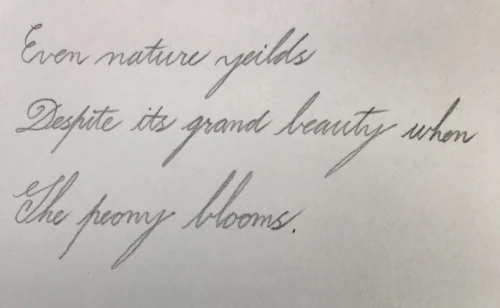 Even nature yeilds
Despite its grand beauty when
The peony blooms.